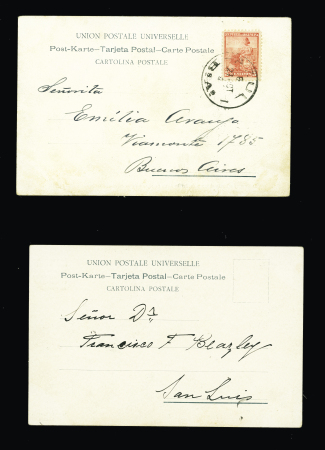 UNION POSTALE UNIVERSELLE
Post-Karte—Tarjeta Postal—Carte Postale
CARTOLINA POSTALE
Señorita
Emilia Araujo
Viamonte 1785
Buenos Aires
UNION POSTALE UNIVERSELLE
Post-Karte—Tarjeta Postal—Carte Postale
CARTOLINA POSTALE
Señor Dr
Francisco F Beazley
San Luis